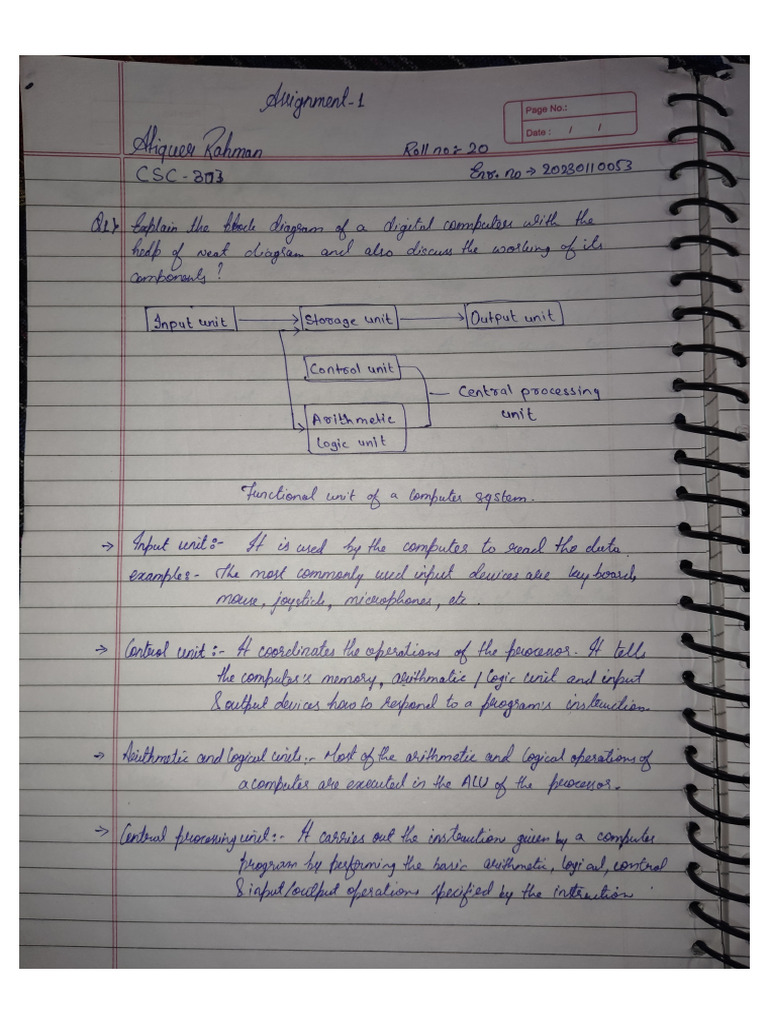 Assignment-1
Page No.:
Date : / /
Atiquer Rahman
Roll no:- 20
CSC-303
Enr. no → 20230110053
Q1) Explain the block diagram of a digital computer with the
help of neat diagram and also discuss the working of its
components?
Input unit
Storage unit
Output unit
Control unit
Central processing
unit
Arithmetic
Logic unit
Functional unit of a computer system.
→ Input unit:- It is used by the computer to read the data.
examples- The most commonly used input devices are keyboard,
mouse, joystick, microphones, etc.
→ Control unit:- It coordinates the operations of the processor. It tells
the computer's memory, arithmatic / logic unit and input
& output devices how to respond to a program's instruction.
→ Arithmetic and logical units:- Most of the arithmetic and logical operations of
a computer are executed in the ALU of the processor.
→ Central processing unit:- It carries out the instruction given by a computer
program by performing the basic arithmetic, logical, control
& input/output operations specified by the intruction.